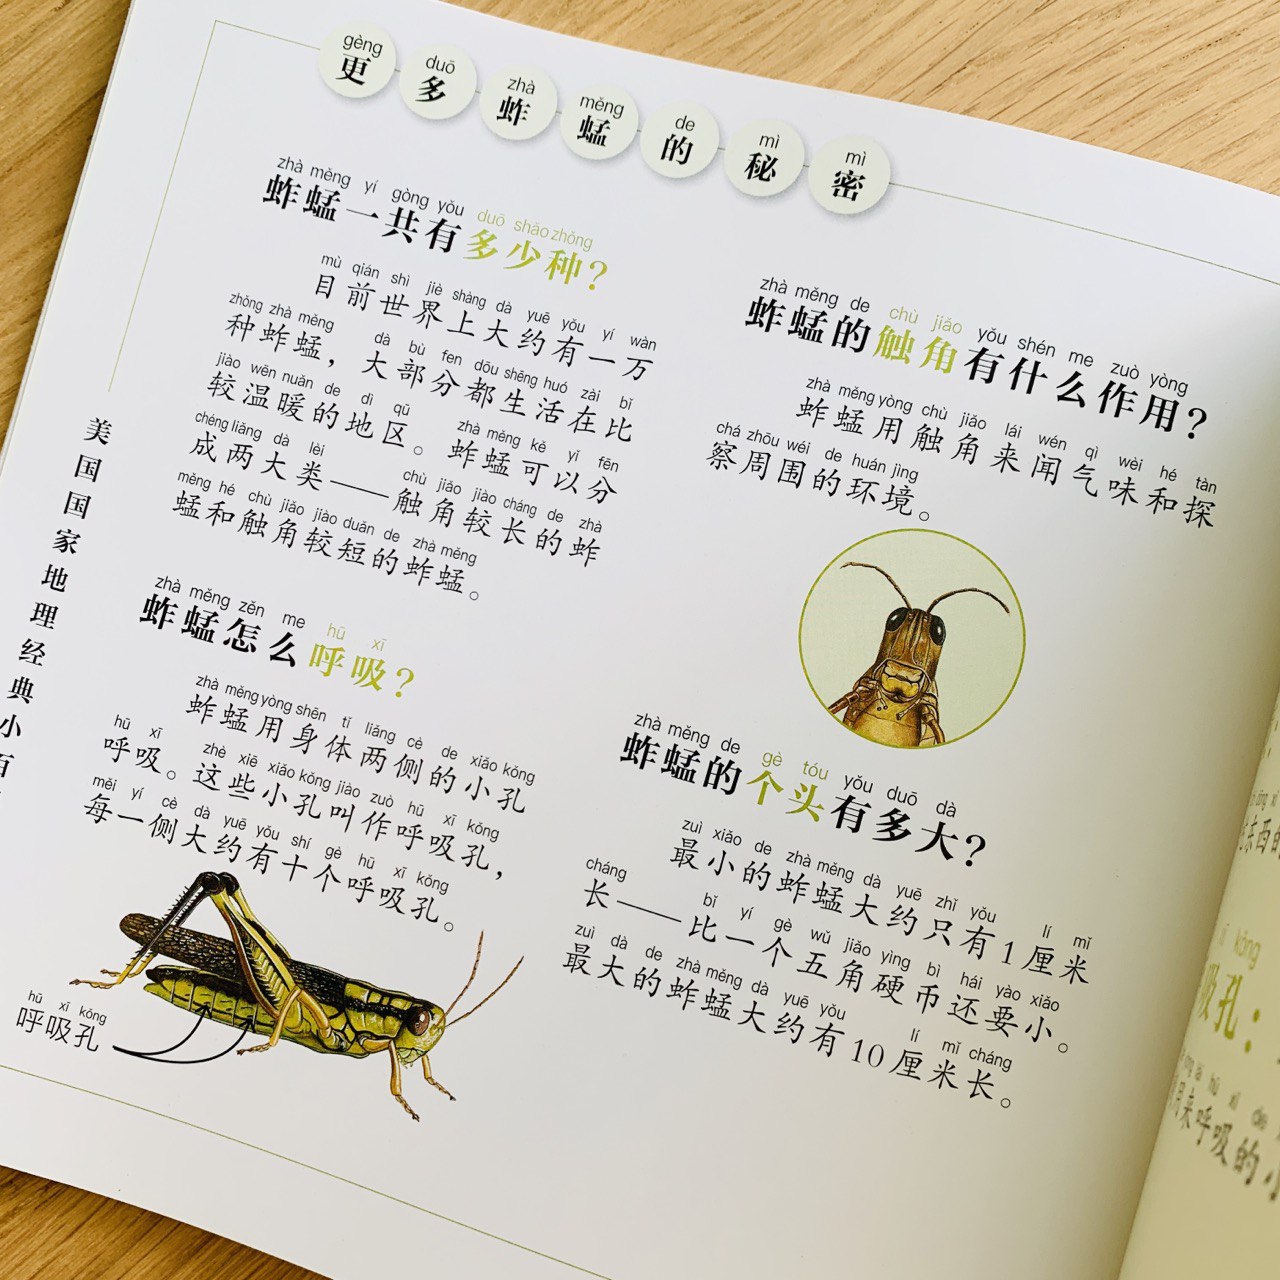 gèng duō zhà měng de mì mì
更多蚱蜢的秘密
zhà měng yí gòng yǒu duō shǎo zhǒng
蚱蜢一共有多少种?
mù qián shì jiè shàng dà yuē yǒu yí wàn
目前世界上大约有一万
zhǒng zhà měng dà bù fen dōu shēng huó zài bǐ
种蚱蜢，大部分都生活在比
jiào wēn nuǎn de dì qū zhà měng kě yǐ fēn
较温暖的地区。蚱蜢可以分
chéng liǎng dà lèi chù jiǎo jiào cháng de zhà
成两大类——触角较长的蚱
měng hé chù jiǎo jiào duǎn de zhà měng
蜢和触角较短的蚱蜢。
zhà měng zěn me hū xī
蚱蜢怎么呼吸?
zhà měng yòng shēn tǐ liǎng cè de xiǎo kǒng
蚱蜢用身体两侧的小孔
hū xī zhè xiē xiǎo kǒng jiào zuò hū xī kǒng
呼吸。这些小孔叫作呼吸孔，
měi yí cè dà yuē yǒu shí gè hū xī kǒng
每一侧大约有十个呼吸孔。
hū xī kǒng
呼吸孔
zhà měng de chù jiǎo yǒu shén me zuò yòng
蚱蜢的触角有什么作用?
zhà měng yòng chù jiǎo lái wén qì wèi hé tàn
蚱蜢用触角来闻气味和探
chá zhōu wéi de huán jìng
察周围的环境。
zhà měng de gè tóu yǒu duō dà
蚱蜢的个头有多大?
zuì xiǎo de zhà měng dà yuē zhǐ yǒu lí mǐ
最小的蚱蜢大约只有1厘米
cháng bǐ yí gè wǔ jiǎo yìng bì hái yào xiǎo
长——比一个五角硬币还要小。
zuì dà de zhà měng dà yuē yǒu lí mǐ cháng
最大的蚱蜢大约有10厘米长。
美国国家地理经典小百
东西的
kǒng
吸孔：
hū xī de
用来呼吸的小